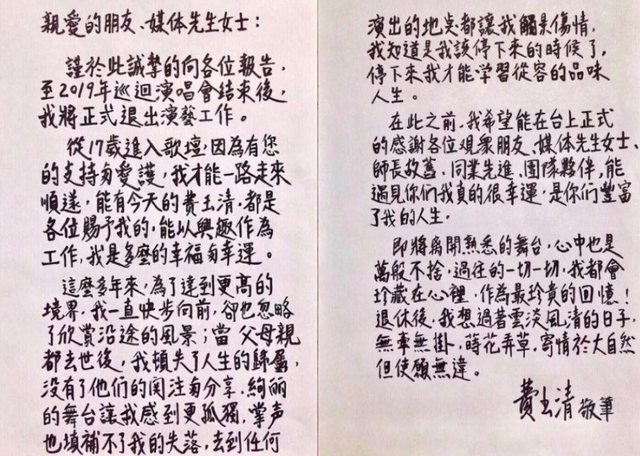 親愛的朋友、媒体先生女士：
謹於此誠摯的向各位報告，
至2019年巡迴演唱會結束後，
我將正式退出演藝工作。
從17歲進入歌壇，因為有您
的支持与愛護，我才能一路走來
順遂，能有今天的費玉清，都是
各位賜予我的，能以興趣作為
工作，我是多麼的幸福与幸運。
這麼多年來，為了達到更高的
境界，我一直快步向前，卻也忽略
了欣賞沿途的風景；當父母親
都去世後，我頓失了人生的歸屬，
沒有了他們的関注与分享，絢麗
的舞台讓我感到更孤獨，掌声
也填補不了我的失落，去到任何
演出的地点都讓我觸景傷情，
我知道是我該停下來的時候了，
停下來我才能学習從容的品味
人生。
在此之前，我希望能在台上正式
的感謝各位观衆朋友、媒体先生女士、
師長故舊、同業先進、團隊夥伴，能
遇見你們我真的很幸運，是你們豐富
了我的人生。
即將離開熟悉的舞台，心中也是
萬般不捨，過往的一切一切，我都會
珍藏在心裡，作為最珍貴的回憶！
退休後，我想過著雲淡風清的日子，
無牽無掛，蒔花弄草，寄情於大自然
但使願無違。
費玉清 敬筆